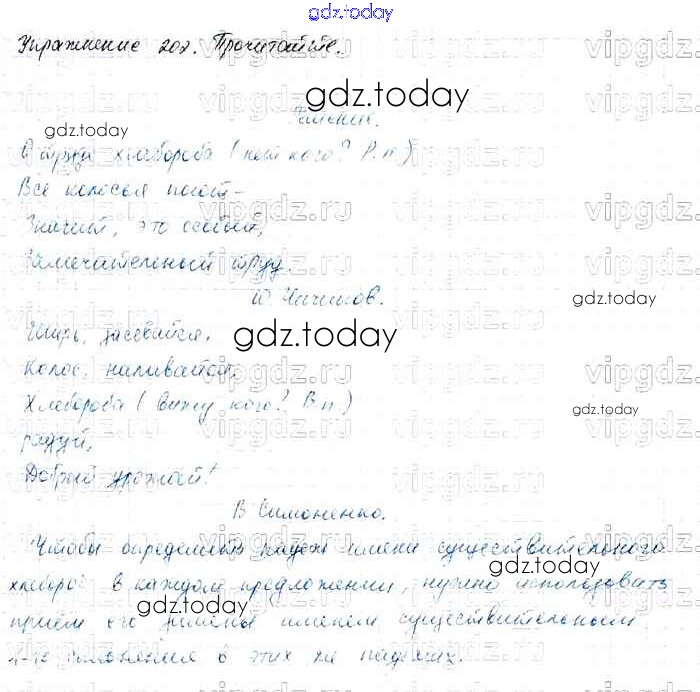 gdz.today
Упражнение 202. Прочитайте.
gdz.today
gdz.today
О труде хлебороба (нет кого? Р.п)
Все колосья поют –
Значит, это особый,
Замечательный труд.
Ю. Чичиков.
gdz.today
gdz.today
Ширь, засевайся,
Колос, наливайся,
Хлебороба (вижу кого? В.п)
gdz.today
радуй,
Добрый урожай!
В Симоненко.
gdz.today
Чтобы определить падеж имени существительного
в каждом предложении, нужно использовать
gdz.today
приём его замены именем существительным
gdz.today
склонения в этих же падежах.
vipgdz.ru